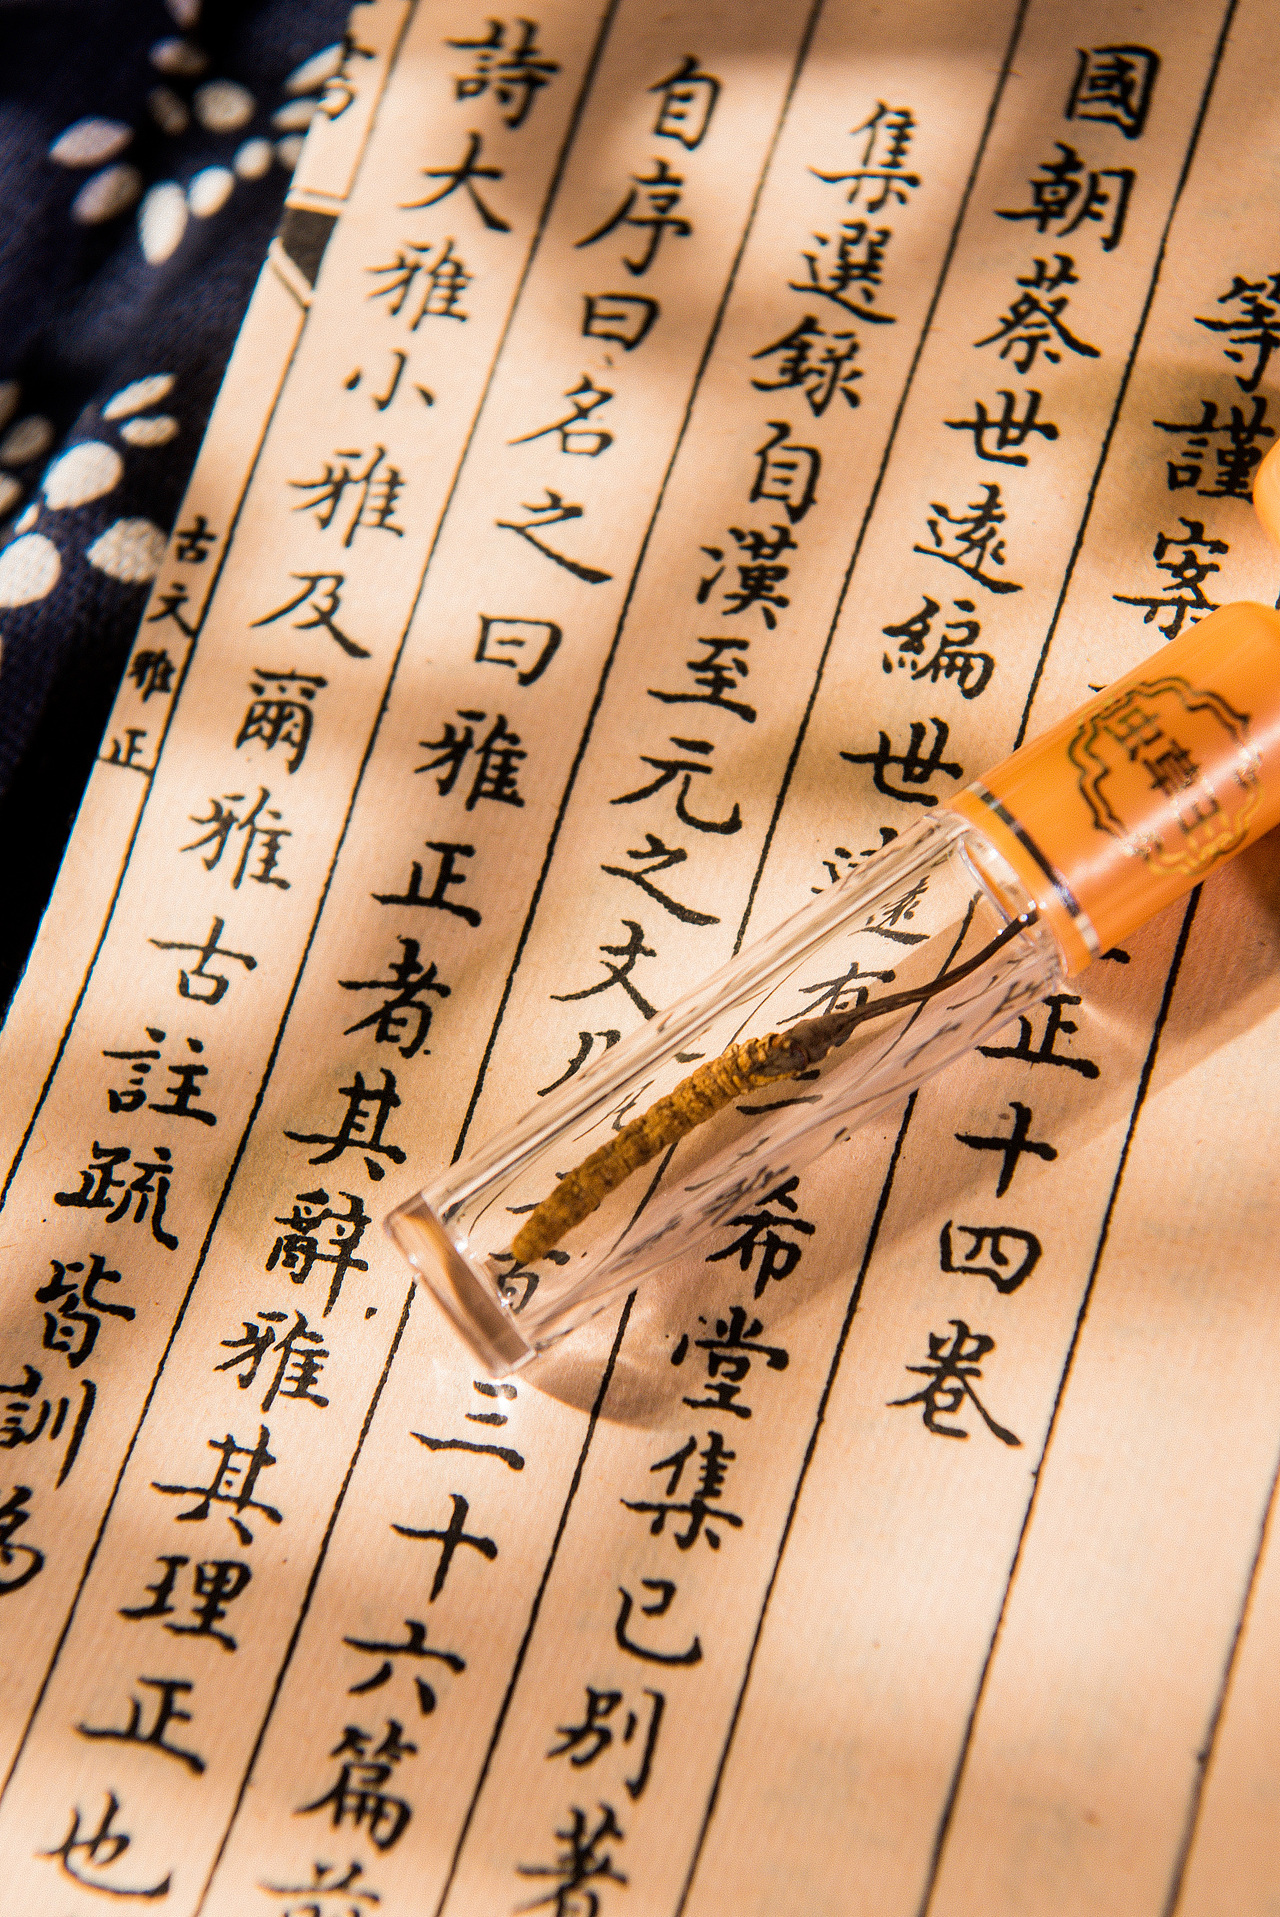 等謹案
正十四卷
國朝蔡世遠編世遠有二希堂集已別著
集選錄自漢至元之文凡二百三十六篇前
自序曰名之曰雅正者其辭雅其理正也
詩大雅小雅及爾雅古註疏皆訓爲
古文雅正